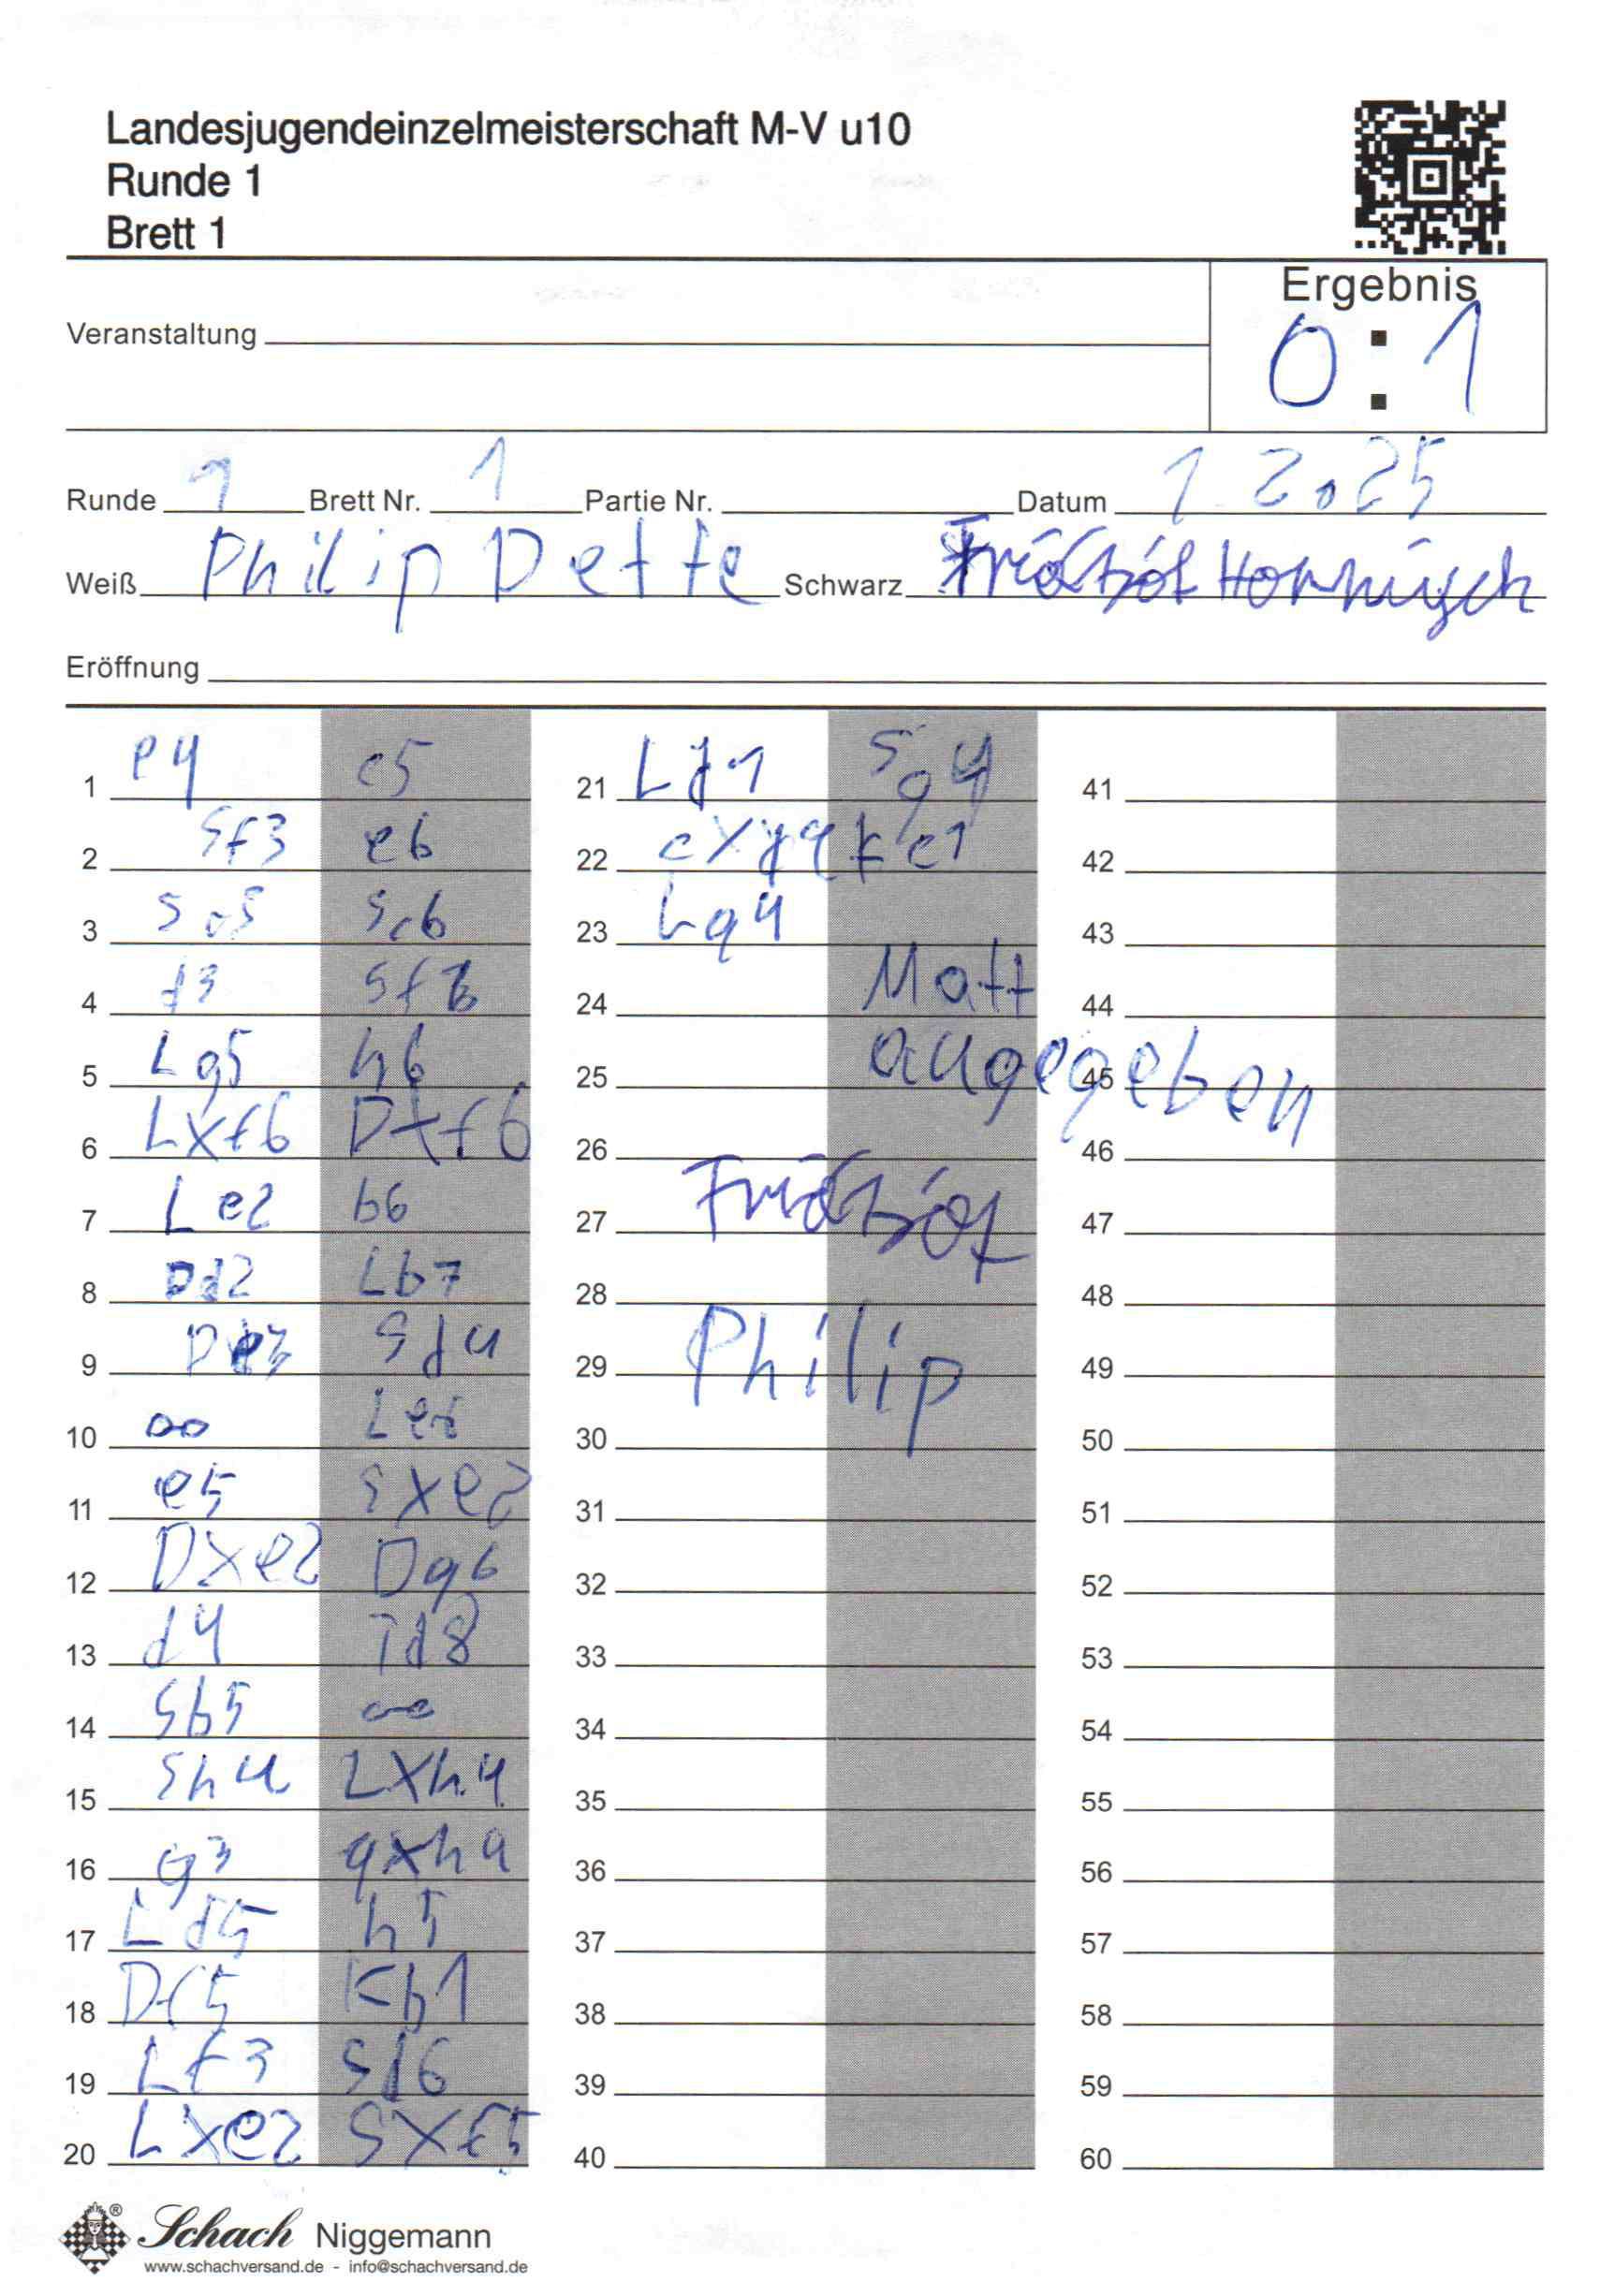 Landesjugendeinzelmeisterschaft M-V u10
Runde 1
Brett 1
Ergebnis
0 : 1
Veranstaltung
Runde 1 Brett Nr. 1 Partie Nr. Datum 1 2.25
Weiß Philip Dette Schwarz
Eröffnung
1 e4 c5
2 Sf3 e6
3 Sc3 Sc6
4 d3 Sf6
5 Lg5 h6
6 Lxf6 Dxf6
7 Le2 b6
8 Dd2 Lb7
9 De3 Sd4
10 oo Le7
11 e5 Sxe2
12 Dxe2 Dg6
13 d4 Td8
14 Sb5 oo
15 Sh4 Lxh4
16 g3
17 h5
18 Kh1
19 Lf3 Sd6
20 Lxe2 Sxf5
21 Ld1 Sg4
22
23
24 Matt
25 augegeben
26
27
28
29 Philip
30
31
32
33
34
35
36
37
38
39
40
41
42
43
44
45
46
47
48
49
50
51
52
53
54
55
56
57
58
59
60
Schach Niggemann
www.schachversand.de - info@schachversand.de